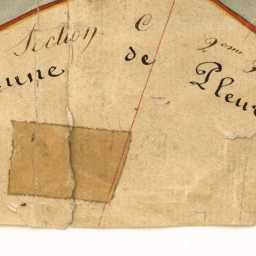 Section C 2eme
de Pleu